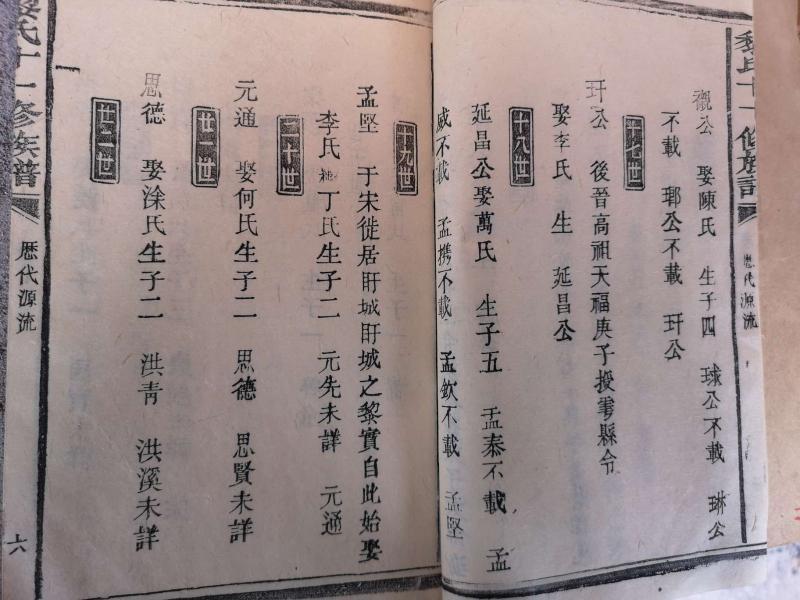 黎氏十一修族譜
歷代源流
覠公 娶陳氏 生子四 球公不載 琳公
不載 琊公不載 玕公
十七世
玕公 後晉高祖天福庚子授雩縣令
娶李氏 生 延昌公
十八世
延昌公娶萬氏 生子五 孟泰不載 孟
咸不載 孟携不載 孟欽不載 孟堅
十九世
孟堅 于宋徙居盱城盱城之黎實自此始娶
李氏 繼丁氏生子二 元先未詳 元通
二十世
元通 娶何氏生子二 思德 思賢未詳
廿一世
思德 娶涂氏生子二 洪青 洪溪未詳
廿二世
黎氏十一修族譜
歷代源流
六